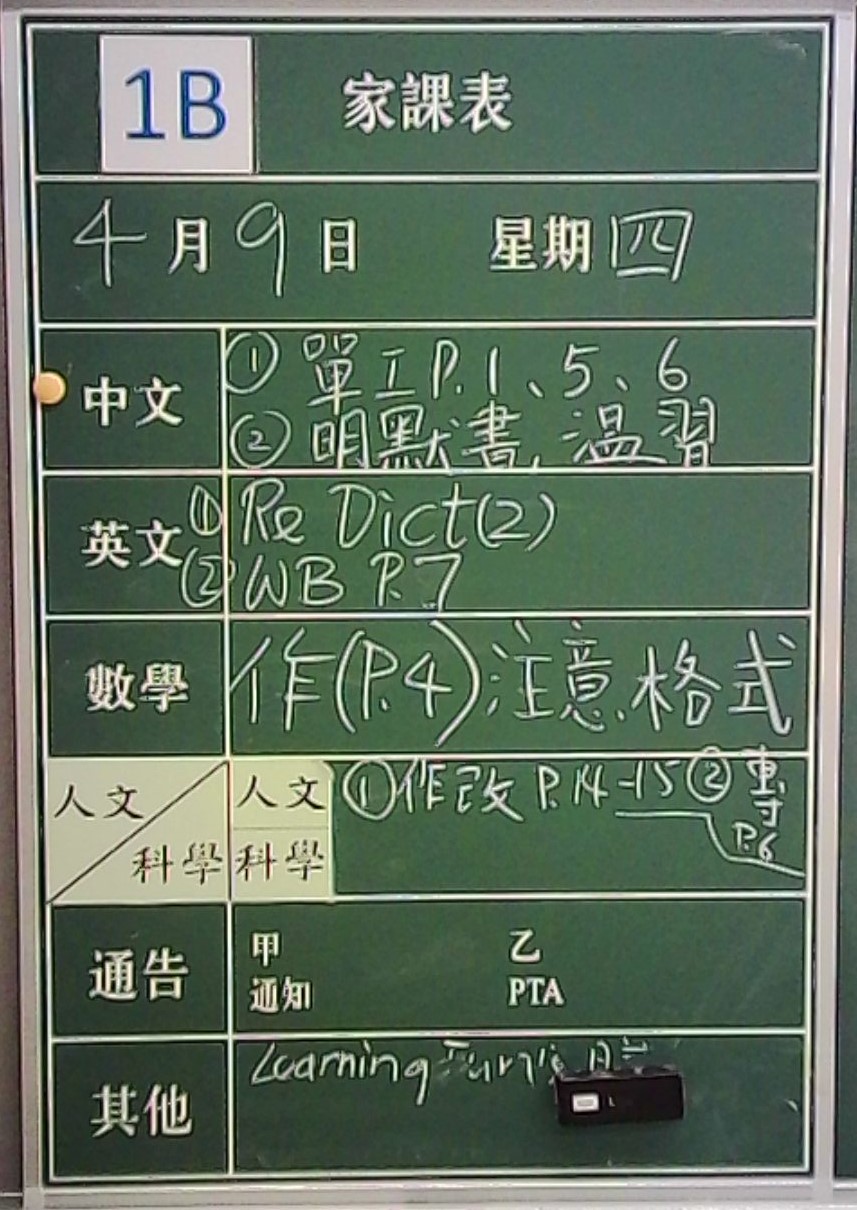 1B 家課表
4月9日 星期四
中文 ① 單工P.1、5、6
② 明默書,温習
英文 ① Re Dict(2)
② WB P.7
數學 作(P.4)注意格式
人文 科學 人文 科學 ①作改 P.14-15 ②
P.6
通告 甲 乙
通知 PTA
其他 Learning